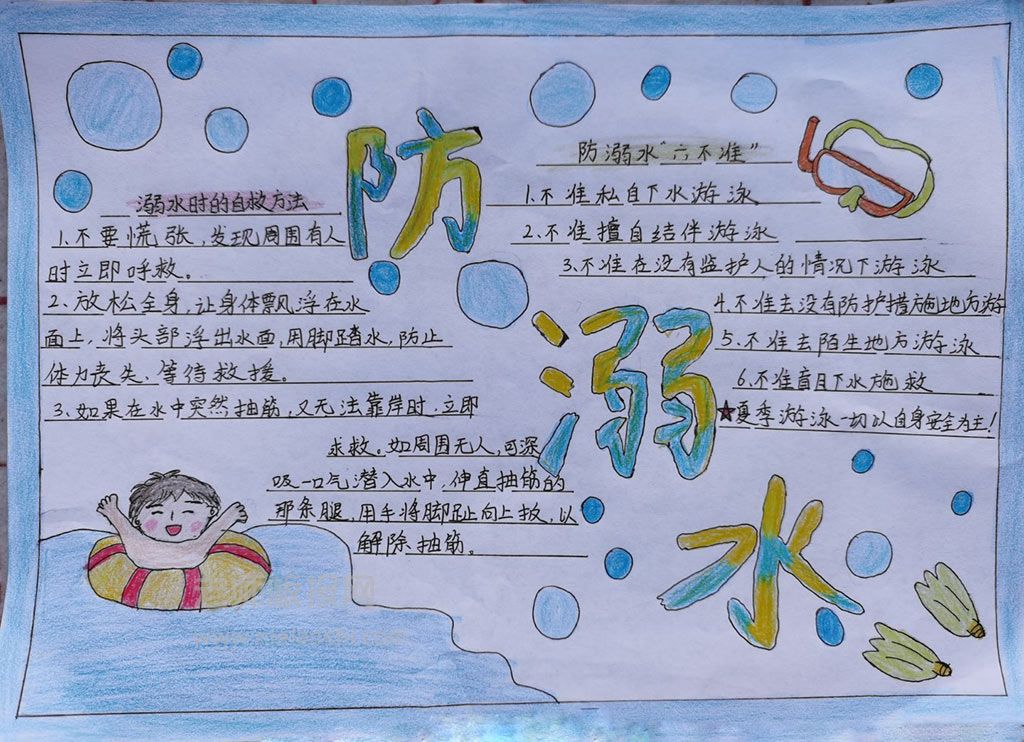 防溺水
溺水时的自救方法
1.不要慌张,发现周围有人
时立即呼救。
2.放松全身,让身体飘浮在水
面上,将头部浮出水面,用脚踏水,防止
体力丧失、等待救援。
3.如果在水中突然抽筋,又无法靠岸时,立即
求救。如周围无人,可深
吸一口气潜入水中,伸直抽筋的
那条腿,用手将脚趾向上扳,以
解除抽筋。
防溺水“六不准”
1.不准私自下水游泳
2.不准擅自结伴游泳
3.不准在没有监护人的情况下游泳
4.不准去没有防护措施地方游
5.不准去陌生地方游泳
6.不准盲目下水施救
★夏季游泳一切以自身安全为主!